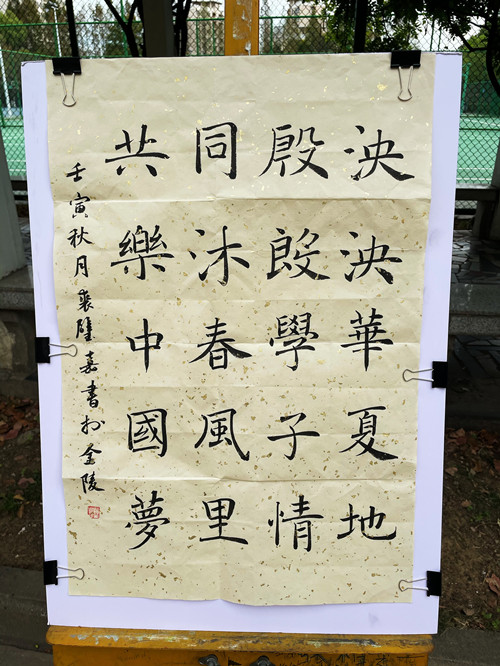 泱泱華夏地
殷殷學子情
同沐春風里
共樂中國夢
壬寅秋月嘉書於金陵